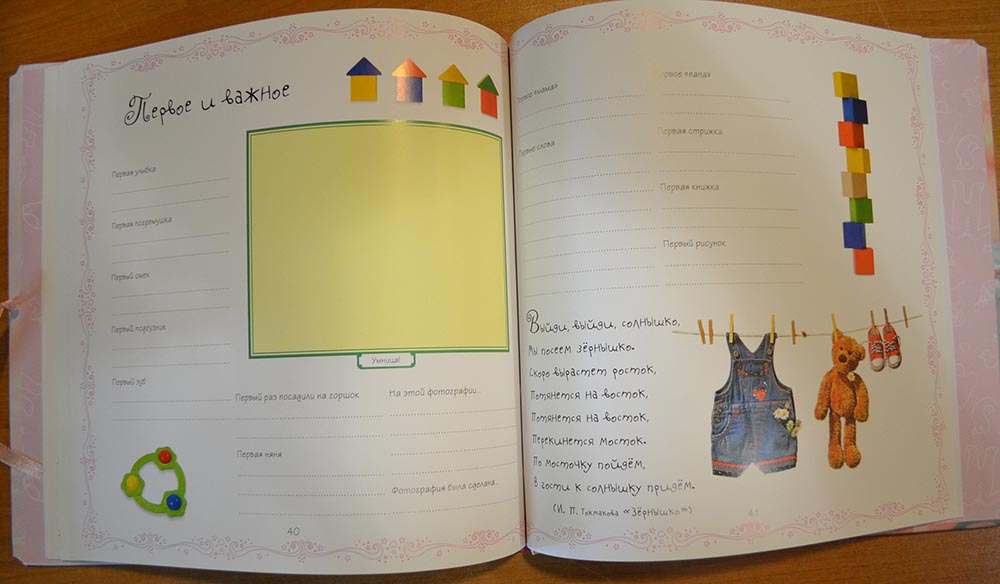 Первое и важное
Первая улыбка
Первая погремушка
Первый смех
Первый подгузник
Первый зуб
Умница!
Первый раз посадили на горшок
Первая няня
На этой фотографии...
Фотография была сделана...
40
Первое «мама»
Первые слова
Первое «папа»
Первая стрижка
Первая книжка
Первый рисунок
Выйди, выйди, солнышко,
Мы посеем зёрнышко.
Скоро вырастет росток,
Потянется на восток,
Потянется на восток,
Перекинется мосток.
По мосточку пойдём,
В гости к солнышку придём.
(И. П. Токмакова «Зёрнышко»)
41